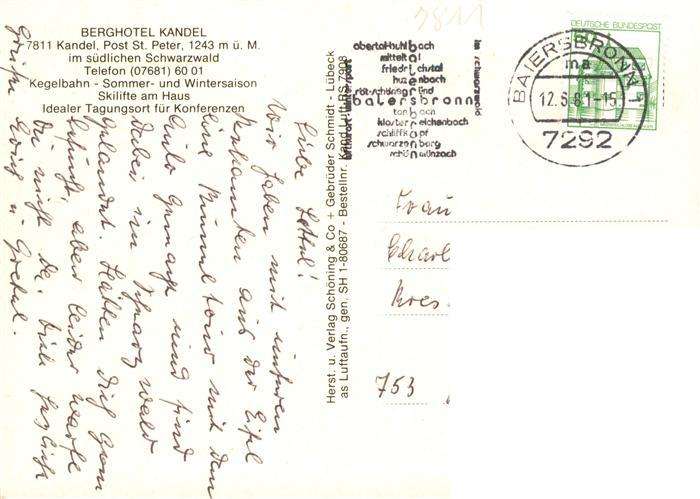 BERGHOTEL KANDEL
7811 Kandel, Post St. Peter, 1243 m ü. M.
im südlichen Schwarzwald
Telefon (07681) 60 01
Kegelbahn - Sommer- und Wintersaison
Skilifte am Haus
Idealer Tagungsort für Konferenzen
Liebe Lottel!
Wir haben mit unseren
Bekannten aus der Eifel
eine Bummeltour mit dem
Auto gemacht und sind
dabei im Schwarzwald
gelandet. Hätten Dich gern
besucht, aber leider warst
Du nicht da. Viele herzliche
Grüße
u. Gretel.
Herst. u. Verlag Schöning & Co + Gebrüder Schmidt - Lübeck
as Luftaufn., gen. SH 1-80687 - Bestellnr. Kand Luft SS 7908
7811
obertal-buhlbach
mitteltal
friedrichstal
huzenbach
röt-schönegründ
baiersbronn
tonbach
klosterreichenbach
schliffkopf
schwarzenberg
schönmünzach
im schwarzwald
BAIERSBRONN 1
12.6.81-15
7292
DEUTSCHE BUNDESPOST
Frau
Charl
Kres
753